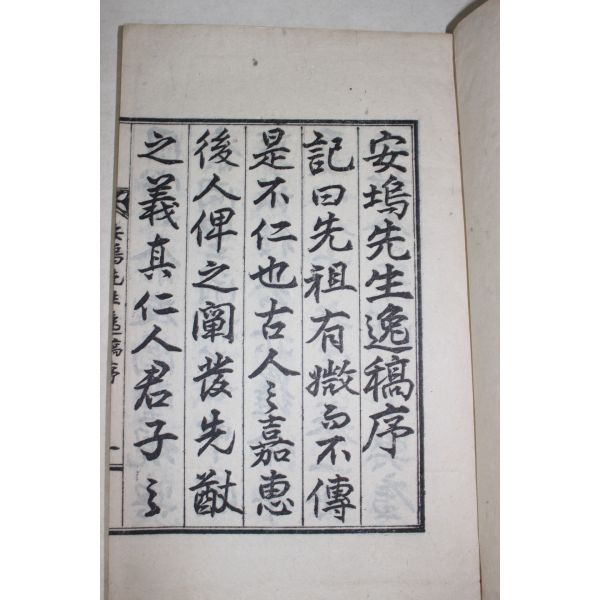 安塢先生逸稿序
記曰先祖有媺而不傳
是不仁也古人之嘉惠
後人俾之闡發先猷
之義真仁人君子之
安塢先生逸稿序
一